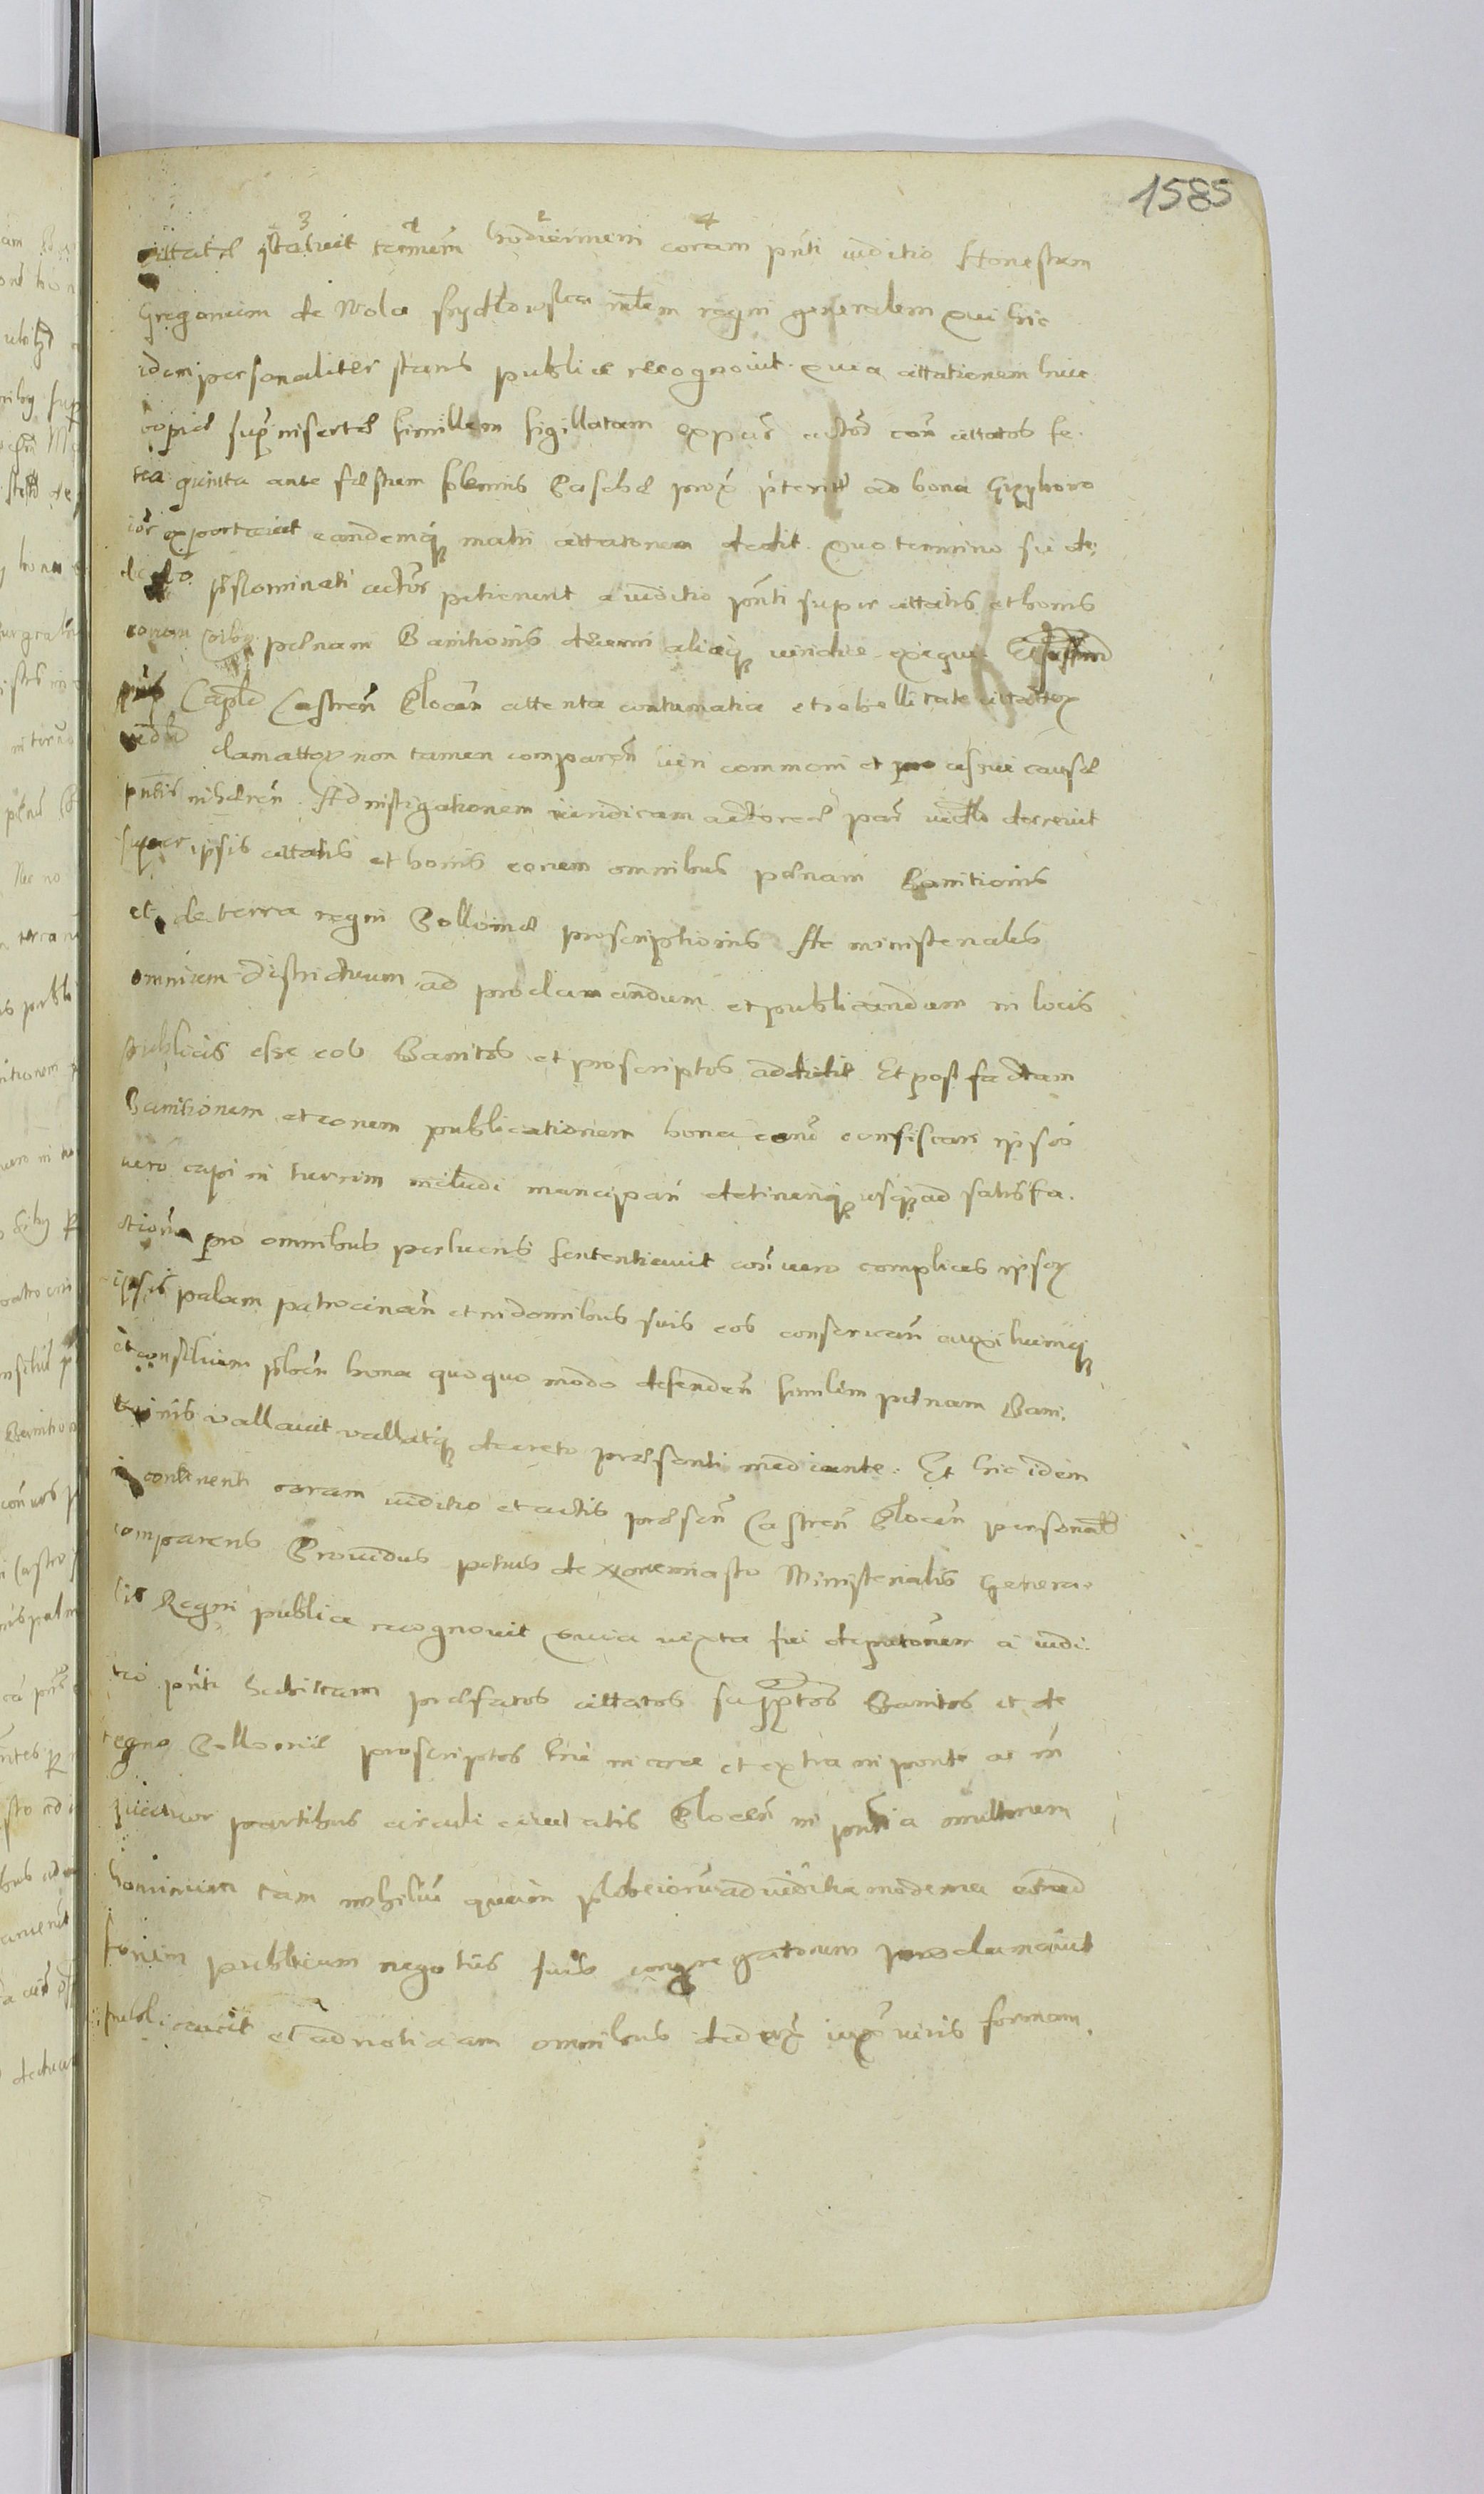 1585
3 1 2 4
cittatę statuit termēm hodiernum coram pn̄ti iuditio Honestum
Gregorium de Wola Szydłowska mlem regni generalem qui hic
idem personaliter stans publice recognovit. Quia cittationem huic
copiæ supr̃ insertæ similem sigillatam ex par̃ actor̃ con̄ cittatos fe-
ria quinta ante festum solennis Paschæ prox̃ p̃terit ad bona Grzybow
exportavit eandemq̨ cittationem dedit. Quo termino sic de-
præ nominati actores petierunt a iuditio pn̄ti super cittatis et bonis
eorum oĩbus pœnam Banitionis decerni aliaq̨ iuridice exequi.
Capłe Castreñ Ploceñ attenta contumatia et rebellitate cittatorꝫ
clamatorꝫ non tamen compareñ ueri commoni et cuisvis causæ
nihæreñ. Ad instigationem iuridicam actoreæ par̃ decrevit
super ipsis cittatis et bonis eorum omnibus pœnam Banitionis
et de terra regni Polloniæ proscriptionis. Ac ministeriales
omnium districtuum ad proclamandum et publicandum in locis
publicis esse eos Banitos et proscriptos addidit. Et post factam
Banitionem et eorum publicationem bona eorū confiscari ipsos
vero capi in turrim includi mancipari detineriq̨ usq̨ ad satisfa-
ctionē pro omnibus perlucris sententiavit con̄ vero complices ipsorꝫ
ipsis palam patrocinañ et in domibus suis eos conservañ auxiliumq̨
et consilium p̃beñ bona quoquo modo defendeñ similem pœnam Bani-
tionis vallavit vallatq̨ decreto præsenti mediante. Et hic idem
in continenti coram iuditio et actis præseñ Castreñ Ploceñ personalr
comparens Providus petrus de Ministerialis Genera-
lis Regni publice recognovit quia iuxta sui deputationem a iudi-
tio pn̄ti habitam præfatos cittatos supp̃tos Banitos et de
regno Polloniæ proscriptos hic in arce et extra in ponte ac in
quatuor partibus circuli civitatis Ploceñ in pn̄tia multorum
hominum tam nobiliū quam plebeiorū ad iuditia moderna et ad
forum publicum negotiis suis congregatorum proclamavit
publicavit et ad notitiam omnibus dedux̃ iuxā iuris formam.